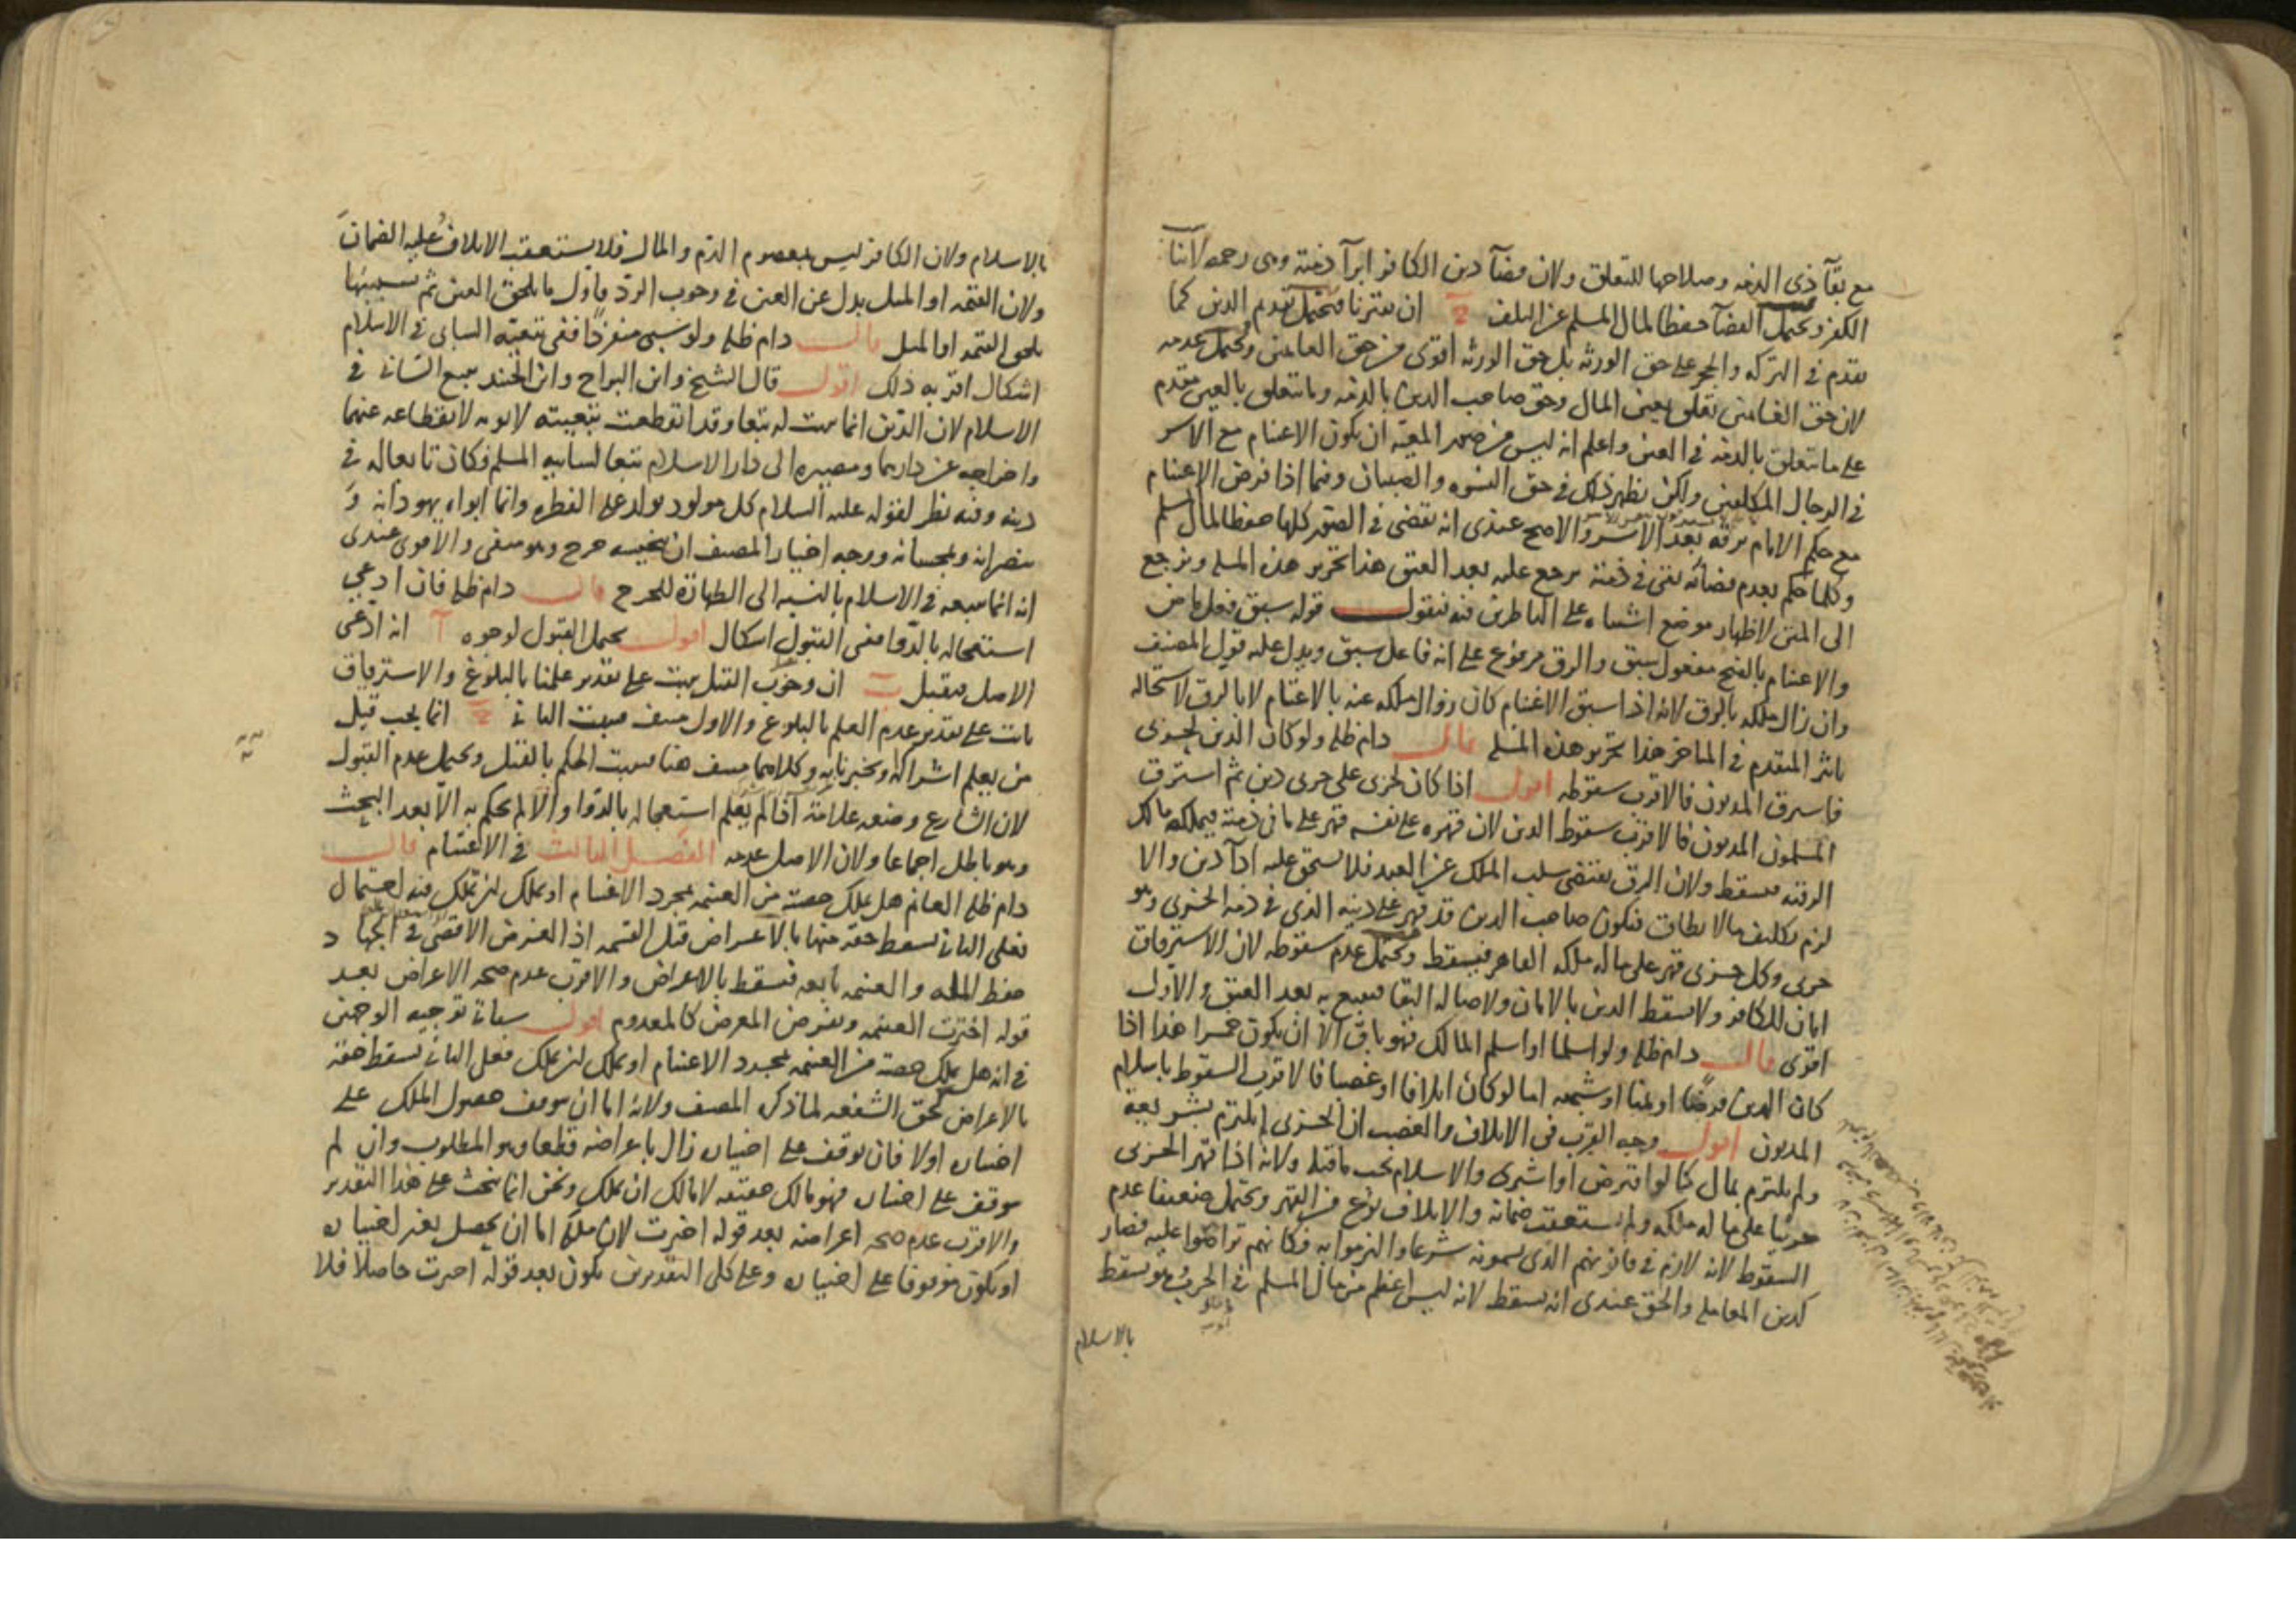 مع بقآ ذى الذمه وصلاحها للتعلق ولان قضآ دين الكافر ابرآ ذمته وهى رحمه لاتناسب
الكفر ويحتمل القضآ حفظا لمال المسلم عن التلف ج ان يقترنا فيحتمل تقدم الدين كما
يقدم في التركه والحجر على حق الورثه بل حق الورثه اقوى من حق الغانمين ويحتمل عدمه
لان حق الغانمين تعلق بعين المال وحق صاحب الدين بالذمه وما يتعلق بالعين مقدم
على ما يتعلق بالذمه في العين واعلم انه ليس من صور المعيه ان يكون الاغتنام مع الاسر
في الرجال المكلفين ولكن يظهر ذلك في حق النسوه والصبيان وفيما اذا فرض الاغتنام
مع حكم الامام برقه بعد الاسر والاصح عندى انه يقضى في الصور كلها حفظا لمال المسلم
وكلما حكم بعدم قضائه يبقى في ذمته يرجع عليه بعد العتق هذا تحرير هذه المسله ونرجع
الى المتن لاظهار موضع اشتباه على الناظرين فيه فنقول قوله سبق فعل ماض
والاغتنام بالفتح مفعول سبق والرق مرفوع على انه فاعل سبق ويدل عليه قول المصنف
وان زال ملكه بالرق لانه اذا سبق الاغتنام كان زوال ملكه عنه بالاغتنام لا بالرق لاستحاله
تاثر المتقدم في المتاخر هذا تحرير هذه المسله قال دام ظله ولو كان الدين لحربى
فاسترق المديون فالاقرب سقوطه اقول اذا كان لحربى على حربى دين ثم استرق
المسلمون المديون فالاقرب سقوط الدين لان قهره على نفسه قهر على ما في ذمته فيملكه مالك
الرقبه فيسقط ولان الرق يقتضى سلب الملك عن العبد فلا يستحق عليه ادآ دين والا
لزم تكليف مالا يطاق فيكون صاحب الدين قد قهر على دينه الذى في ذمه الحربى وهو
حربى وكل حربى قهر على ماله ملكه القاهر فيسقط ويحتمل عدم سقوطه لان الاسترقاق
امان للكافر ولا يسقط الدين بالامان ولاصاله البقا فيتبع به بعد العتق والاول
اقوى قال دام ظله ولو اسلما او اسلم المالك فهو باق الا ان يكون خمرا هذا اذا
كان الدين قرضا او ثمنا او شبهه اما لو كان اتلافا او غصبا فالاقرب السقوط باسلام
المديون اقول وجه القرب في الاتلاف والغصب ان الحربى لم يلتزم بشريعه
ولم يلتزم بمال كما لو اقترض او اشترى والاسلام يجب ما قبله ولانه اذا قهر الحربى
حربيا على ماله ملكه ولم يستعقب ضمانه والاتلاف نوع من القهر ويحتمل ضعيفا عدم
السقوط لانه لازم في قانونهم الذى يسمونه شرعا والتزموا به فكانهم تراضوا عليه فصار
كدين المعامله والحق عندى انه يسقط لانه ليس اعظم من مال المسلم في الحرب وهو يسقط
بالاسلام
بالاسلام ولان الكافر ليس بمعصوم الدم والمال فلا يستعقب الاتلاف عليه الضمان
ولان القيمه او المثل بدل عن العين في وجوب الرد فاول ما يلحق العين ثم بسببها
يلحق القيمه او المثل قال دام ظله ولو سبى منفردا ففى تبعيته السابى في الاسلام
اشكال اقربه ذلك اقول قال الشيخ وابن البراج وابن الجنيد يتبع السابى في
الاسلام لان الدين انما يثبت له تبعا وقد انقطعت تبعيته لابويه لانقطاعه عنهما
واخراجه عن دارهما ومصيره الى دار الاسلام تبعا لسابيه المسلم فكان تابعا له في
دينه وفيه نظر لقوله عليه السلام كل مولود يولد على الفطره وانما ابواه يهودانه و
ينصرانه ويمجسانه ووجه اختيار المصنف ان تنجيسه حرج وهو منفى والاقوى عندى
انه انما يتبعه في الاسلام بالنسبه الى الطهاره للحرج قال دام ظله فان ادعى
استعجاله بالدوا ففى القبول اشكال اقول يحتمل القبول لوجوه آ انه ادعى
الاصل فيقبل ب ان وجوب القتل يثبت على تقدير علمنا بالبلوغ والاسترقاق
ثابت على تقدير عدم العلم بالبلوغ والاول منتف فيثبت الثانى ج انما يجب قتل
من يعلم اشراكه وكلاهما منتف هنا فيثبت الحكم بالقتل ويحتمل عدم القبول
لان الشارع وضعه علامه اذا لم يعلم استعجاله بالدوا والا لم يحكم به الا بعد البحث
وهو باطل اجماعا ولان الاصل عدمه الفصل الثالث في الاغتنام قال
دام ظله الغانم هل يملك حصته من الغنيمه بمجرد الاغتنام او يملك ان يملك فيه احتمال
فعلى الثانى يسقط حقه منها بالاعراض قبل القسمه اذ الغرض الاقصى في الجهاد
حفظ المله والغنيمه تابعه فيسقط بالاعراض والاقرب عدم صحه الاعراض بعد
قوله اخترت الغنيمه ويفرض المعرض كالمعدوم اقول سياتى توجيه الوجهين
في انه هل يملك حصته من الغنيمه بمجرد الاغتنام او يملك ان يملك فعلى الثانى يسقط حقه
بالاعراض كحق الشفعه لما ذكره المصنف ولانه اما ان يتوقف حصول الملك على
اختياره اولا فان توقف على اختياره زال باعراضه قطعا وهو المطلوب وان لم
يتوقف على اختياره فهو مالك حقيقه لا مالك ان يملك ونحن انما نبحث على هذا التقدير
والاقرب عدم صحه اعراضه بعد قوله اخترت لان ملكه اما ان يحصل بغير اختياره
او يكون موقوفا على اختياره وعلى كلى التقديرين يكون بعد قوله اخترت حاصلا فلا